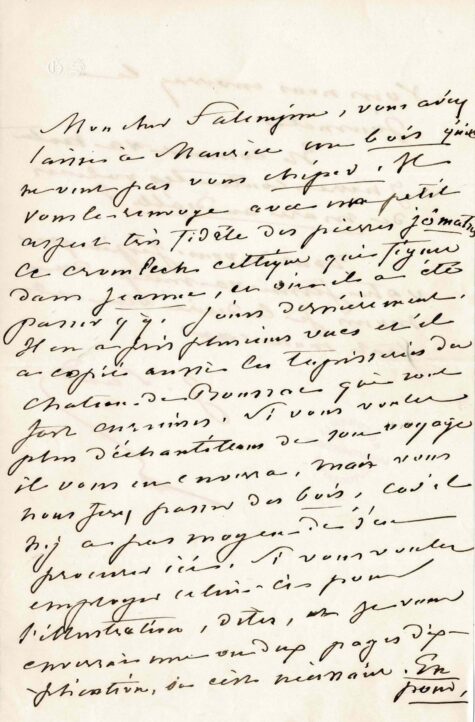 Mon cher Falempin, vous avez
laissé à Maurice un bois qu'il
ne veut pas vous chiper. Il
vous le renvoye avec un petit
aspect très fidèle des pierres jomatres
ce cromlech celtique qui figure
dans Jeanne, et où il a été
passer qq. jours dernièrement.
Il en a pris plusieurs vues et il
a copié aussi les tapisseries du
château de Boussac qui sont
fort curieuses. Si vous voulez
plus d'échantillons de son voyage
il vous en enverra, mais vous
nous ferez passer des bois, car il
n'y a pas moyen de s'en
procurer ici. Si vous voulez
employer celui-ci pour
l'illustration, dites, et je vous
enverrai une ou deux pages d'ex-
plication, si c'est nécessaire. En
prose,